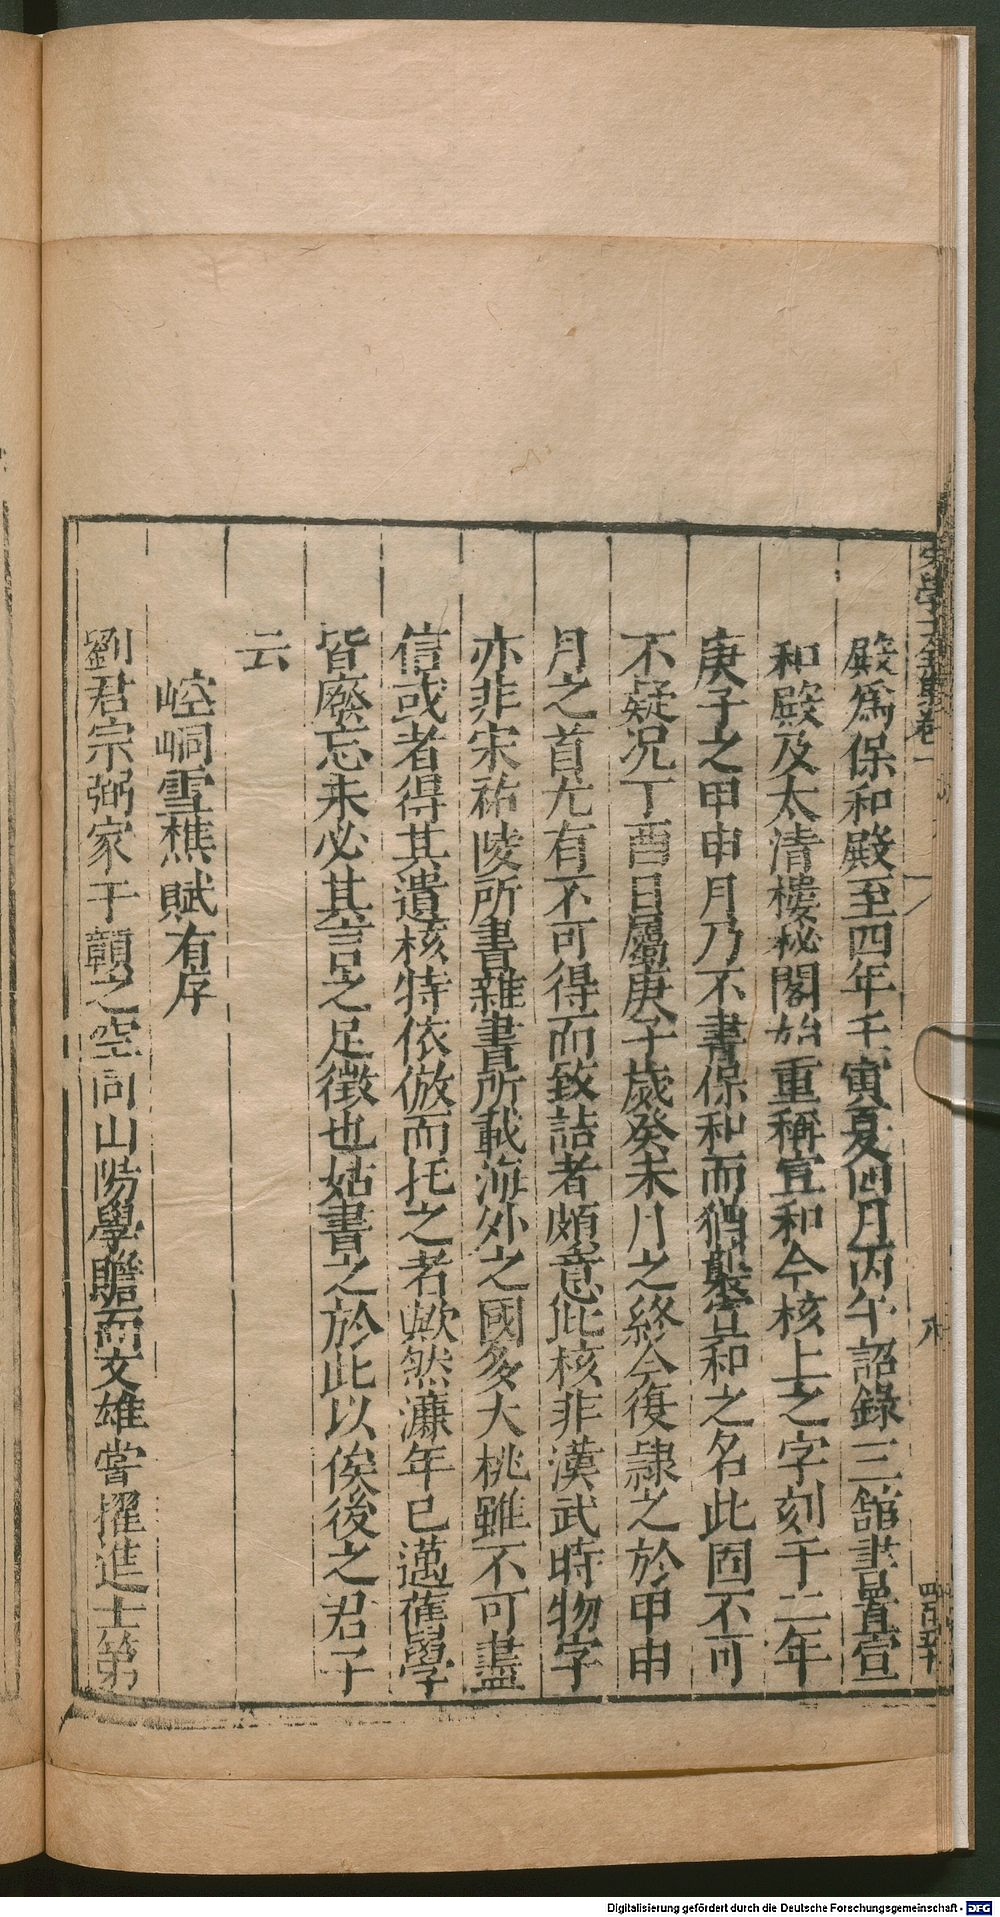 殿爲保和殿至四年壬寅夏四月丙午詔錄三舘書置宣
和殿及太清樓秘閣始重稱宣和今核上之字刻于二年
庚子之甲申月乃不書保和而猶襲宣和之名此固不可
不疑况丁酉日屬庚子歲癸未月之終今復隷之於甲申
月之首尤有不可得而致詰者頗意此核非漢武時物字
亦非宋祐陵所書雜書所載海外之國多大桃雖不可盡
信或者得其遺核特依倣而托之者歟然濂年已邁舊學
皆廢忘未必其言之足徵也姑書之於此以俟後之君子
云
崆峒雪樵賦有序
劉君宗弼家于贛之空同山陽學贍而文雄嘗擢進士第
Digitalisierung gefördert durch die Deutsche Forschungsgemeinschaft - DFG